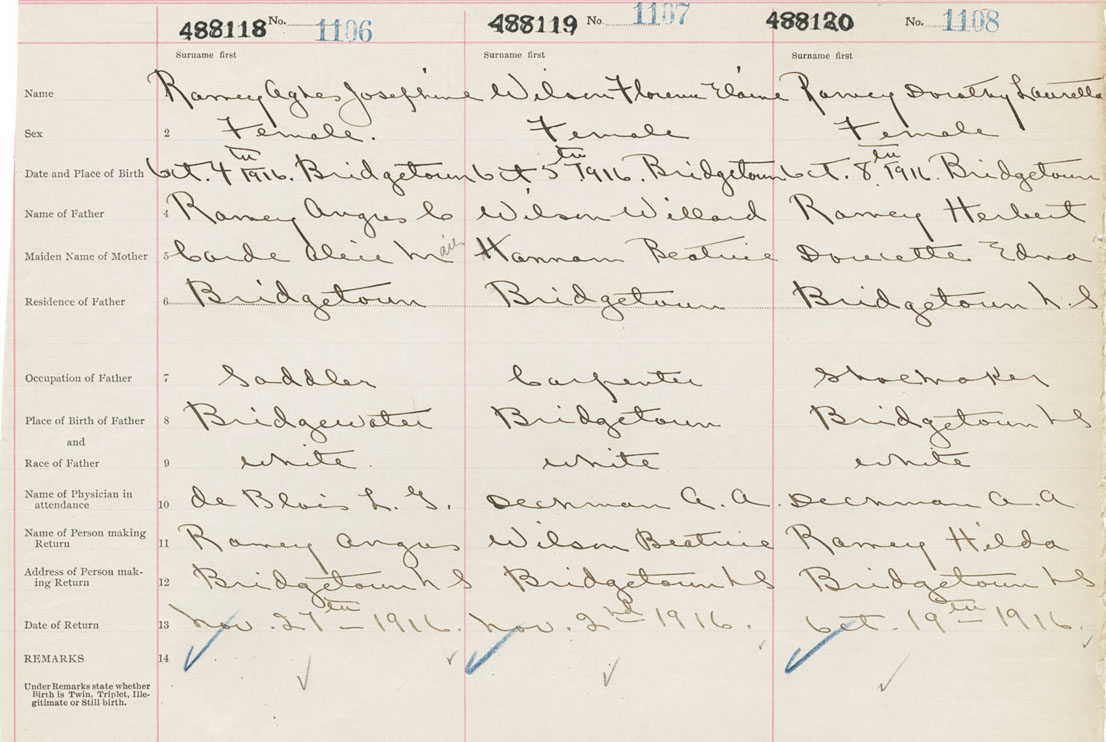 488118 No. 1106 488119 No. 1107 488120 No. 1108
Surname first Surname first Surname first
Name Ramey Agnes Josephine Wilson Florence Elaine Ramey Dorothy Lauretta
Sex 2 Female. Female Female
Date and Place of Birth Oct. 4th 1916. Bridgetown Oct 5th 1916. Bridgetown Oct. 8th 1916. Bridgetown
Name of Father 4 Ramey Angus C Wilson Willard Ramey Herbert
Maiden Name of Mother 5 Corde Alice M Hannam Beatrice Doucette Edna
Residence of Father 6 Bridgetown Bridgetown Bridgetown N.S
Occupation of Father 7 Saddler Carpenter Shoemaker
Place of Birth of Father 8 Bridgewater Bridgetown Bridgetown NS
and
Race of Father 9 white. white white
Name of Physician in
attendance 10 de Blois L. G. Deckman A. A. Deckman A. A.
Name of Person making
Return 11 Ramey Angus Wilson Beatrice Ramey Hilda
Address of Person mak-
ing Return 12 Bridgetown NS Bridgetown NS Bridgetown NS
Date of Return 13 Nov. 27th 1916. Nov. 2nd 1916. Oct. 19th 1916.
REMARKS 14
Under Remarks state whether
Birth is Twin, Triplet, Ille-
gitimate or Still birth.